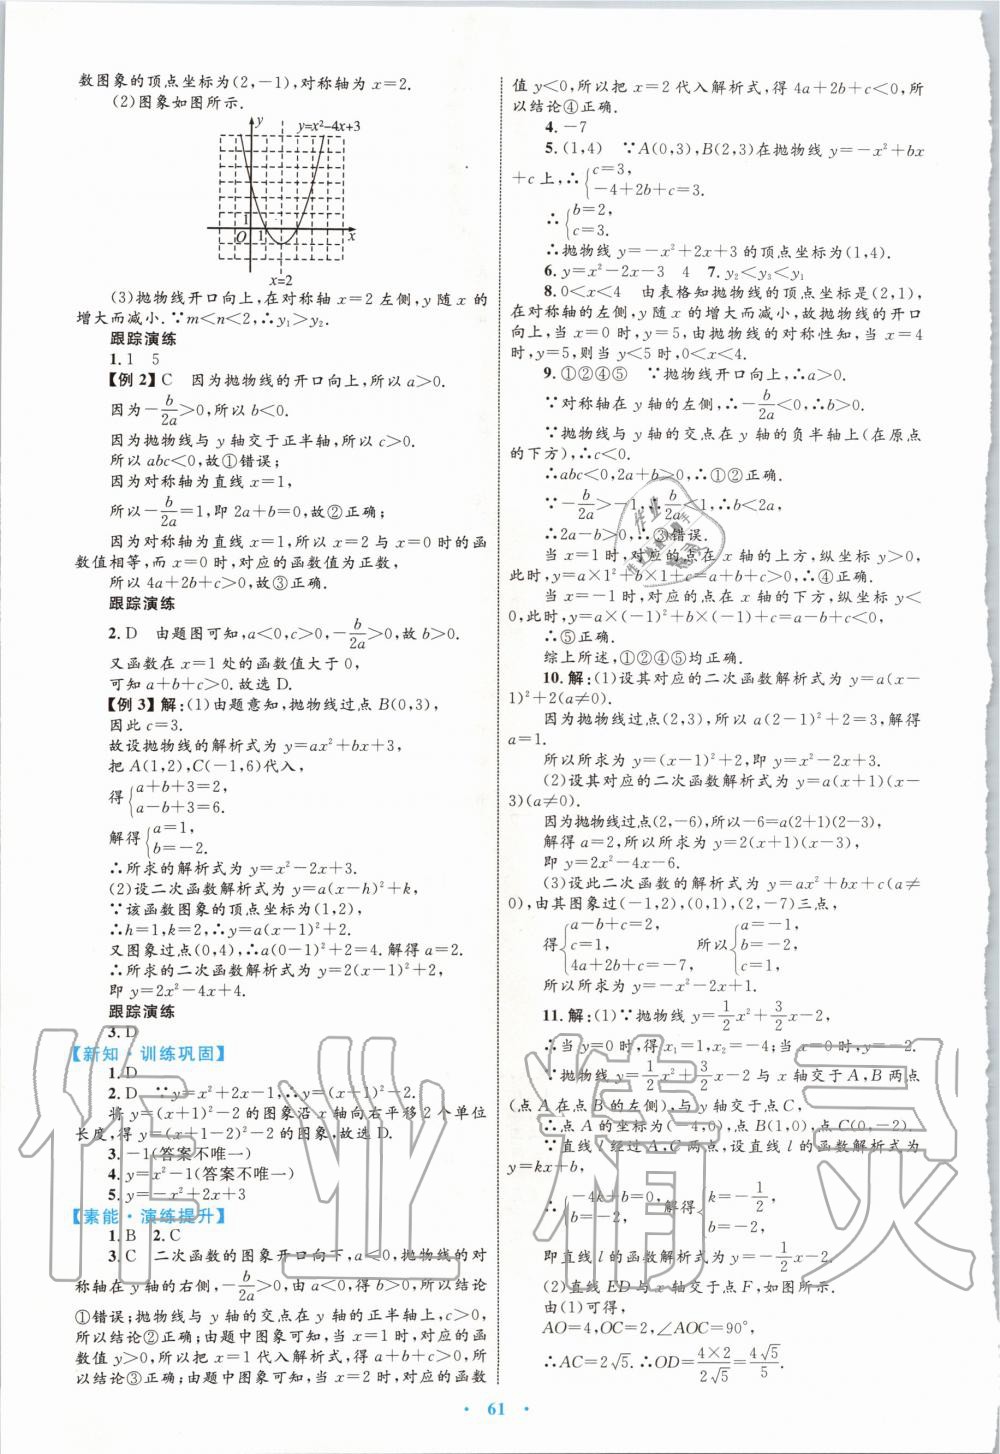 数图象的顶点坐标为(2,-1),对称轴为x=2.
(2)图象如图所示.
y
y=x²-4x+3
1
O
1
x
x=2
(3)抛物线开口向上,在对称轴x=2左侧,y随x的
增大而减小.∵m<n<2,∴y₁>y₂.
跟踪演练
1.1 5
【例2】C 因为抛物线的开口向上,所以a>0.
因为-b/2a>0,所以b<0.
因为抛物线与y轴交于正半轴,所以c>0.
所以abc<0,故①错误;
因为对称轴为直线x=1,
所以-b/2a=1,即2a+b=0,故②正确;
因为对称轴为直线x=1,所以x=2与x=0时的函
数值相等,而x=0时,对应的函数值为正数,
所以4a+2b+c>0,故③正确.
跟踪演练
2.D 由题图可知,a<0,c>0,-b/2a>0,故b>0.
又函数在x=1处的函数值大于0,
可知a+b+c>0.故选D.
【例3】解:(1)由题意知,抛物线过点B(0,3),
因此c=3.
故设抛物线的解析式为y=ax²+bx+3,
把A(1,2),C(-1,6)代入,
得{a+b+3=2,
a-b+3=6.
解得{a=1,
b=-2.
∴所求的解析式为y=x²-2x+3.
(2)设二次函数解析式为y=a(x-h)²+k,
∵该函数图象的顶点坐标为(1,2),
∴h=1,k=2,∴y=a(x-1)²+2.
又图象过点(0,4),∴a(0-1)²+2=4.解得a=2.
∴所求的二次函数解析式为y=2(x-1)²+2,
即y=2x²-4x+4.
跟踪演练
3.D
【新知·训练巩固】
1.D
2.D ∵y=x²+2x-1,∴y=(x+1)²-2.
将y=(x+1)²-2的图象沿x轴向右平移2个单位
长度,得y=(x+1-2)²-2的图象,故选D.
3.-1(答案不唯一)
4.y=x²-1(答案不唯一)
5.y=-x²+2x+3
【素能·演练提升】
1.B 2.C
3.C 二次函数的图象开口向下,a<0,抛物线的对
称轴在y轴的右侧,-b/2a>0,由a<0,得b>0,所以结论
①错误;抛物线与y轴的交点在y轴的正半轴上,c>0,
所以结论②正确;由题中图象可知,当x=1时,对应的函
数值y>0,所以把x=1代入解析式,得a+b+c>0,所
以结论③正确;由题中图象可知,当x=2时,对应的函数
值y<0,所以把x=2代入解析式,得4a+2b+c<0,所
以结论④正确.
4.-7
5.(1,4) ∵A(0,3),B(2,3)在抛物线y=-x²+bx
+c上,∴{c=3,
-4+2b+c=3.
∴{b=2,
c=3.
∴抛物线y=-x²+2x+3的顶点坐标为(1,4).
6.y=x²-2x-3 4 7.y₂<y₃<y₁
8.0<x<4 由表格知抛物线的顶点坐标是(2,1),
在对称轴的左侧,y随x的增大而减小,故抛物线的开口
向上,当x=0时,y=5,由抛物线的对称性知,当x=4
时,y=5,则当y<5时,0<x<4.
9.①②④⑤ ∵抛物线开口向上,∴a>0.
∵对称轴在y轴的左侧,∴-b/2a<0,∴b>0.
∵抛物线与y轴的交点在y轴的负半轴上(在原点
的下方),∴c<0.
∴abc<0,2a+b>0,∴①②正确.
∵-b/2a>-1,∴b/2a<1,∴b<2a,
∴2a-b>0,∴③错误.
当x=1时,对应的点在x轴的上方,纵坐标y>0,
此时,y=a×1²+b×1+c=a+b+c>0,∴④正确.
当x=-1时,对应的点在x轴的下方,纵坐标y<
0,此时,y=a×(-1)²+b×(-1)+c=a-b+c<0,
∴⑤正确.
综上所述,①②④⑤均正确.
10.解:(1)设其对应的二次函数解析式为y=a(x-
1)²+2(a≠0).
因为抛物线过点(2,3),所以a(2-1)²+2=3,解得
a=1.
所以所求为y=(x-1)²+2,即y=x²-2x+3.
(2)设其对应的二次函数解析式为y=a(x+1)(x-
3)(a≠0).
因为抛物线过点(2,-6),所以-6=a(2+1)(2-3),
解得a=2.所以所求为y=2(x+1)(x-3),
即y=2x²-4x-6.
(3)设此二次函数的解析式为y=ax²+bx+c(a≠
0),由其图象过(-1,2),(0,1),(2,-7)三点,
得{a-b+c=2,
c=1,
4a+2b+c=-7,
所以{a=-1,
b=-2,
c=1,
所以所求为y=-x²-2x+1.
11.解:(1)∵抛物线y=1/2x²+3/2x-2,
∴当y=0时,得x₁=1,x₂=-4;当x=0时,y=-2.
∵抛物线y=1/2x²+3/2x-2与x轴交于A,B两点
(点A在点B的左侧),与y轴交于点C,
∴点A的坐标为(-4,0),点B(1,0),点C(0,-2).
∵直线l经过A,C两点,设直线l的函数解析式为
y=kx+b,
∴{-4k+b=0,
b=-2,
解得{k=-1/2,
b=-2.
即直线l的函数解析式为y=-1/2x-2.
(2)直线ED与x轴交于点F,如图所示.
由(1)可得,
AO=4,OC=2,∠AOC=90°,
∴AC=2√5.∴OD=4×2/2√5=4√5/5.
· 61 ·
作业精灵